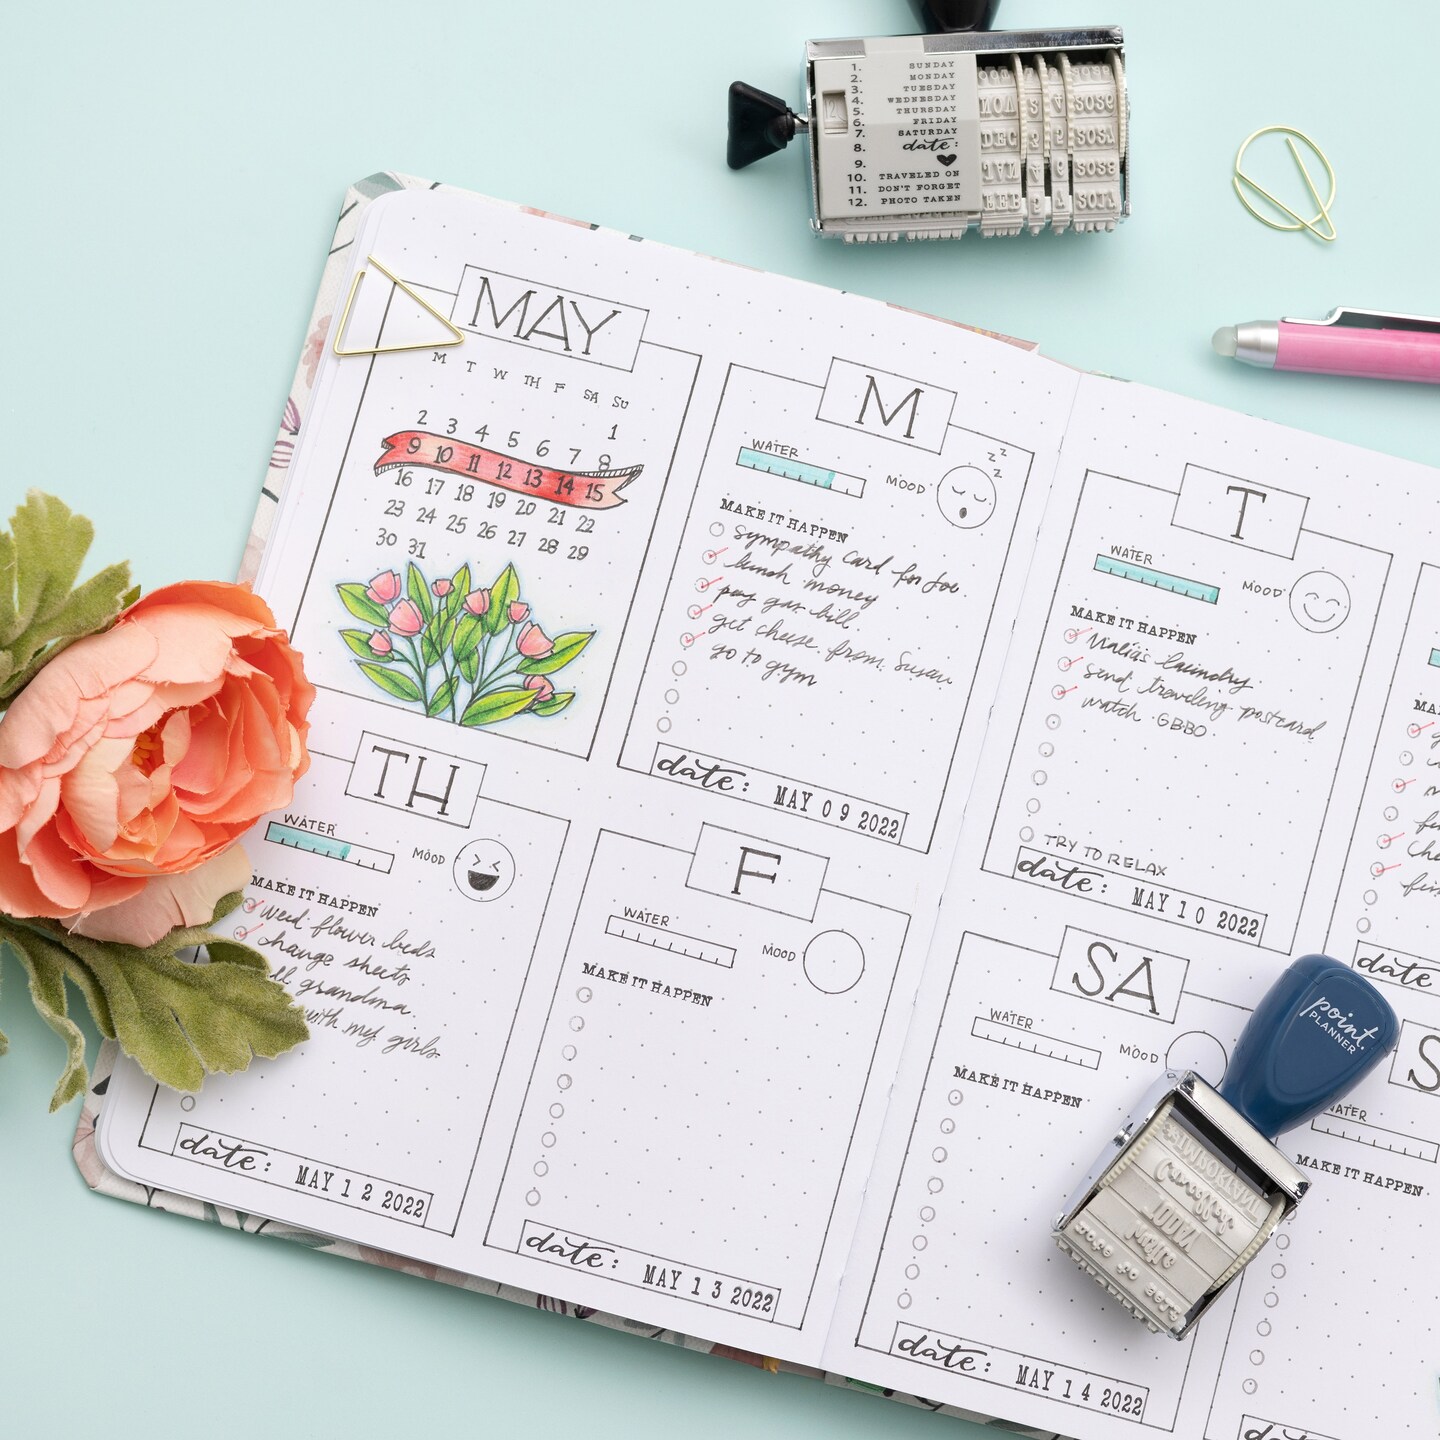 1. SUNDAY
2. MONDAY
3. TUESDAY
4. WEDNESDAY
5. THURSDAY
6. FRIDAY
7. SATURDAY
8. date:
9. ♥
10. TRAVELED ON
11. DON'T FORGET
12. PHOTO TAKEN
MAY
M T W TH F SA SU
1
2 3 4 5 6 7 8
9 10 11 12 13 14 15
16 17 18 19 20 21 22
23 24 25 26 27 28 29
30 31
M
WATER
MOOD
z z z
MAKE IT HAPPEN
Sympathy card for Joe
lunch money
pay gas bill
get cheese from Susan
go to gym
date: MAY 09 2022
T
WATER
MOOD
MAKE IT HAPPEN
Malia's laundry
send traveling postcard
watch GBBO
TRY TO RELAX
date: MAY 10 2022
MA
date:
TH
WATER
MOOD
MAKE IT HAPPEN
weed flower beds
change sheets
ll grandma
with my girls
date: MAY 12 2022
F
WATER
MOOD
MAKE IT HAPPEN
date: MAY 13 2022
SA
WATER
MOOD
MAKE IT HAPPEN
date: MAY 14 2022
point
PLANNER
S
WATER
MAKE IT HAPPEN
date: